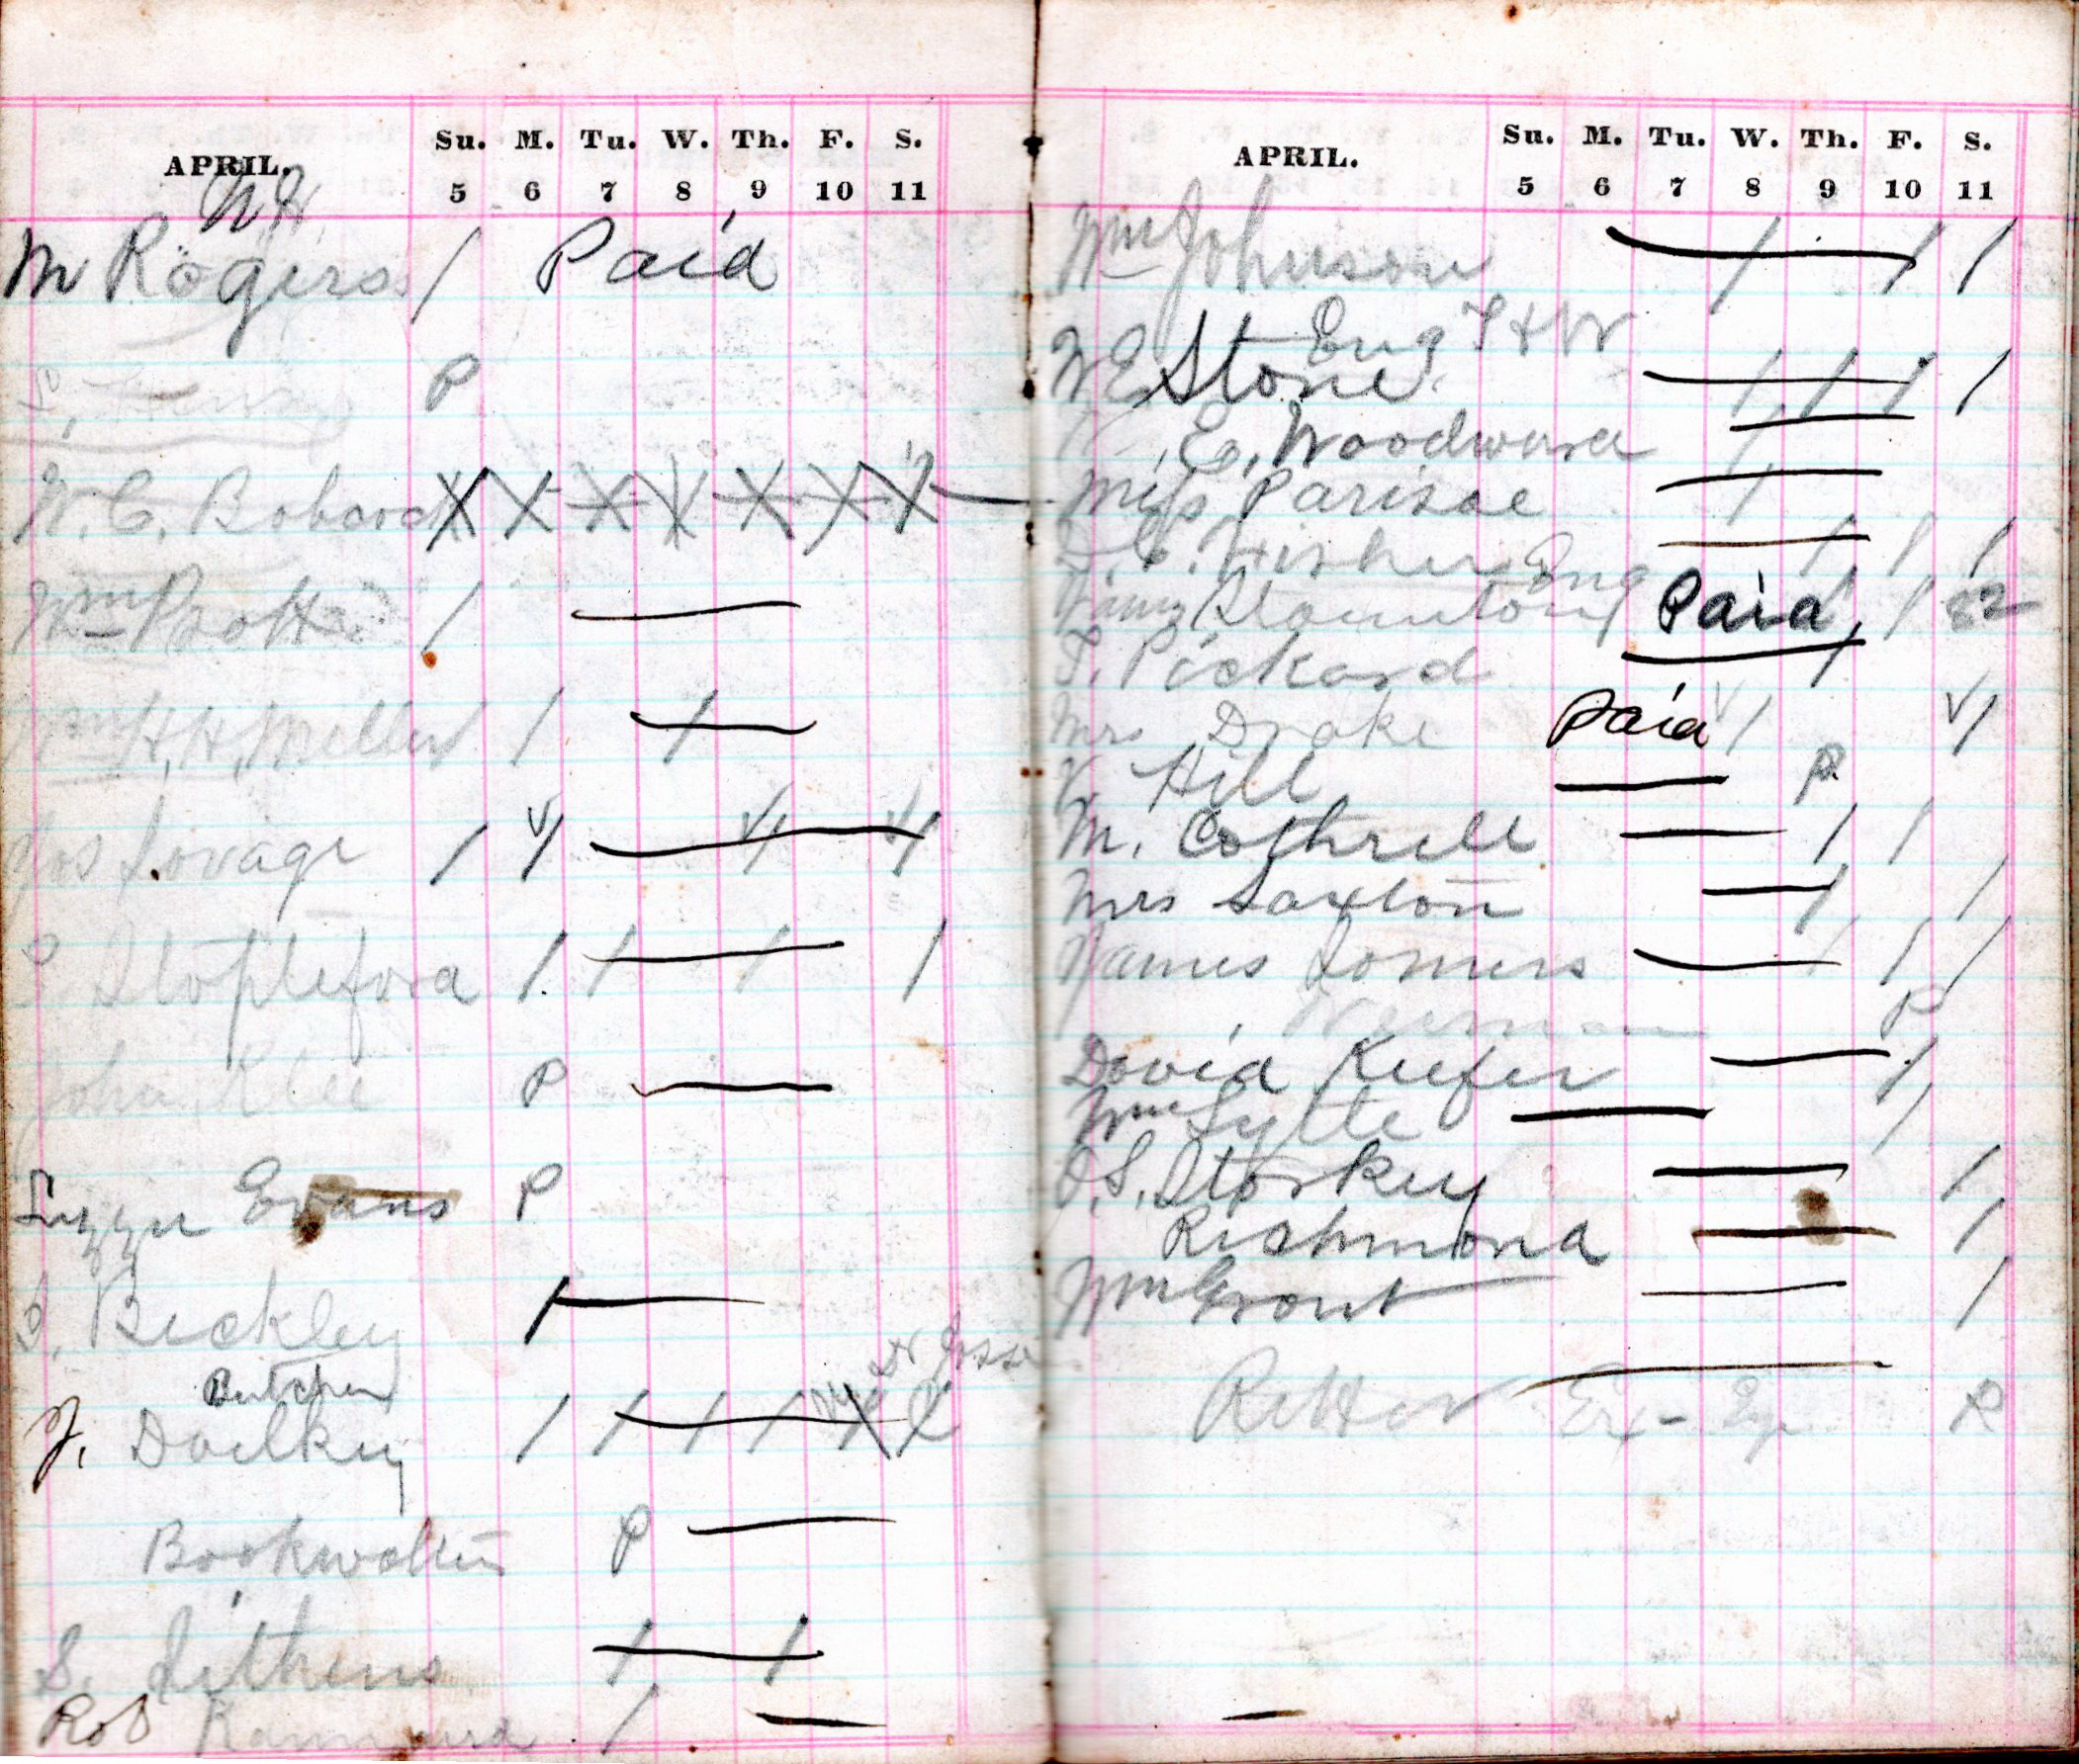 APRIL. Su. M. Tu. W. Th. F. S.
5 6 7 8 9 10 11
M Rogers / Paid
P
W. C. Bobard X X X X X X X
Wm /
Wm H. H. Miller / /
Jos Lovage / √/ √/ √/
S Stopleford / / / /
John Klee P
Lizzie Evans P
S. Bickley /
Butcher
J. Doelkey / / / / X X
Bookwalter P
S. Sithens / /
Rob /
APRIL. Su. M. Tu. W. Th. F. S.
5 6 7 8 9 10 11
Wm Johnson / / /
Eng
W E Stone / / / /
E. Woodward /
Miss Parisoe /
Fisher Eng / / /
Staunton Paid / 22
T. Pickard /
Mrs Drake Paid √/ √/
V. Hill P
M. Cothrell / / /
Mrs Saxton / /
James Somers / / /
P
David Keefer /
Wm Lytle /
S. Storkey /
Richmond /
Wm Grout /
Rettor Ex - P